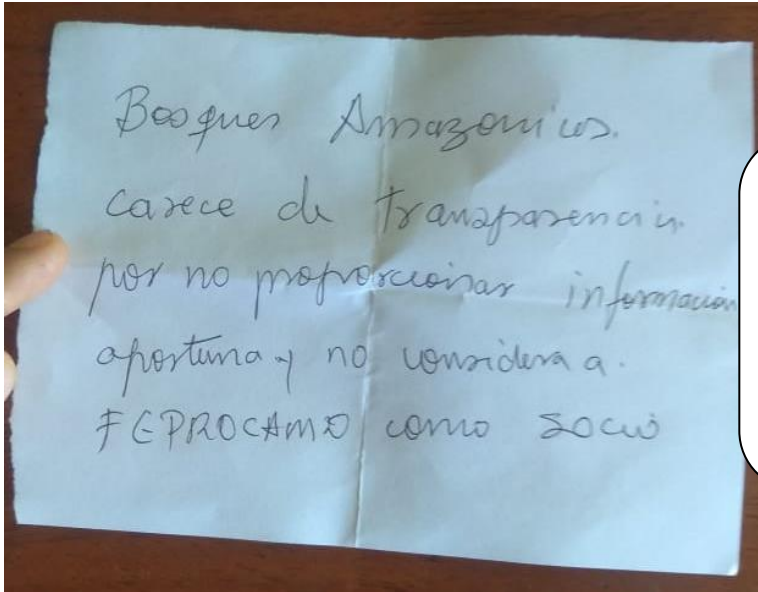 Bosques Amazonicos.
carece de transparencia
por no proporcionar información
oportuna y no considera a
FEPROCAMD como socio